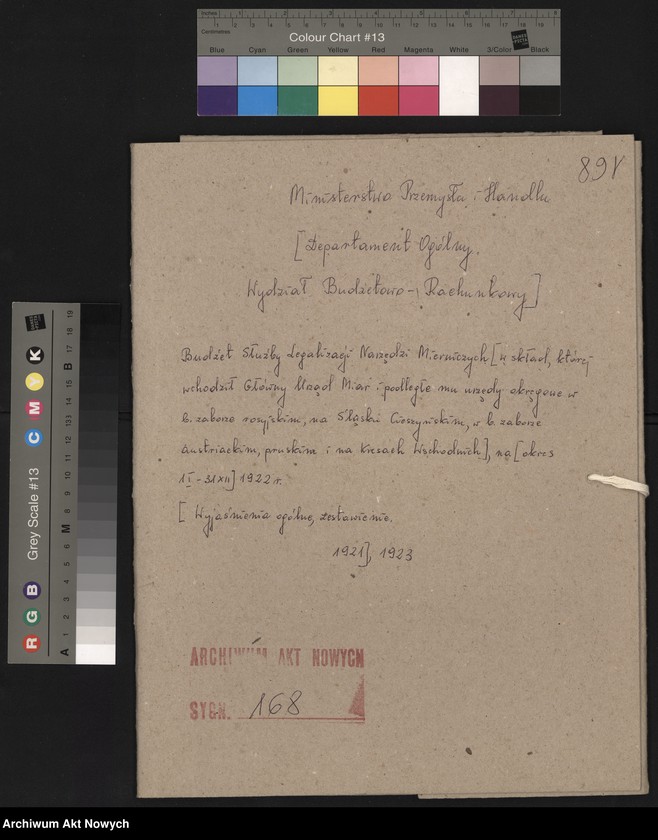 Inches 1 2 3 4 5 6 7 8
Centimetres 1 2 3 4 5 6 7 8 9 10 11 12 13 14 15 16 17 18 19
Colour Chart #13
Blue Cyan Green Yellow Red Magenta White 3/Color Black
891
Ministerstwo Przemysłu i Handlu
[Departament Ogólny.
Wydział Budżetowo-Rachunkowy]
Budżet Służby Legalizacji Narzędzi Mierniczych [w skład, której
wchodził Główny Urząd Miar i podległe mu urzędy okręgowe w
b. zaborze rosyjskim, na Śląsku Cieszyńskim, w b. zaborze
austriackim, pruskim i na Kresach Wschodnich], na [okres
1 I - 31 XII] 1922 r.
[Wyjaśnienia ogólne, zestawienie.
1921], 1923
ARCHIWUM AKT NOWYCH
SYGN. 168
Grey Scale #13
R G B C M Y K
A 1 2 3 4 5 6 M 8 9 10 11 12 13 14 15 B 17 18 19
Archiwum Akt Nowych